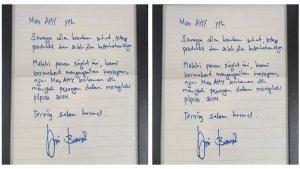 Mas AHY yth
Semoga dlm keadaan sehat, tetap
produktif dan selalu dlm
Melalui pesan singkat ini, kami
bermaksud menyampaikan harapan,
agar Mas AHY berkenan utk
menjadi pasangan dalam mengikuti
pilpres 2024.
Teriring salam hormat.
Mas AHY yth
Semoga dlm keadaan sehat, tetap
produktif dan selalu dlm
Melalui pesan singkat ini, kami
bermaksud menyampaikan harapan,
agar Mas AHY berkenan utk
menjadi pasangan dalam mengikuti
pilpres 2024.
Teriring salam hormat.